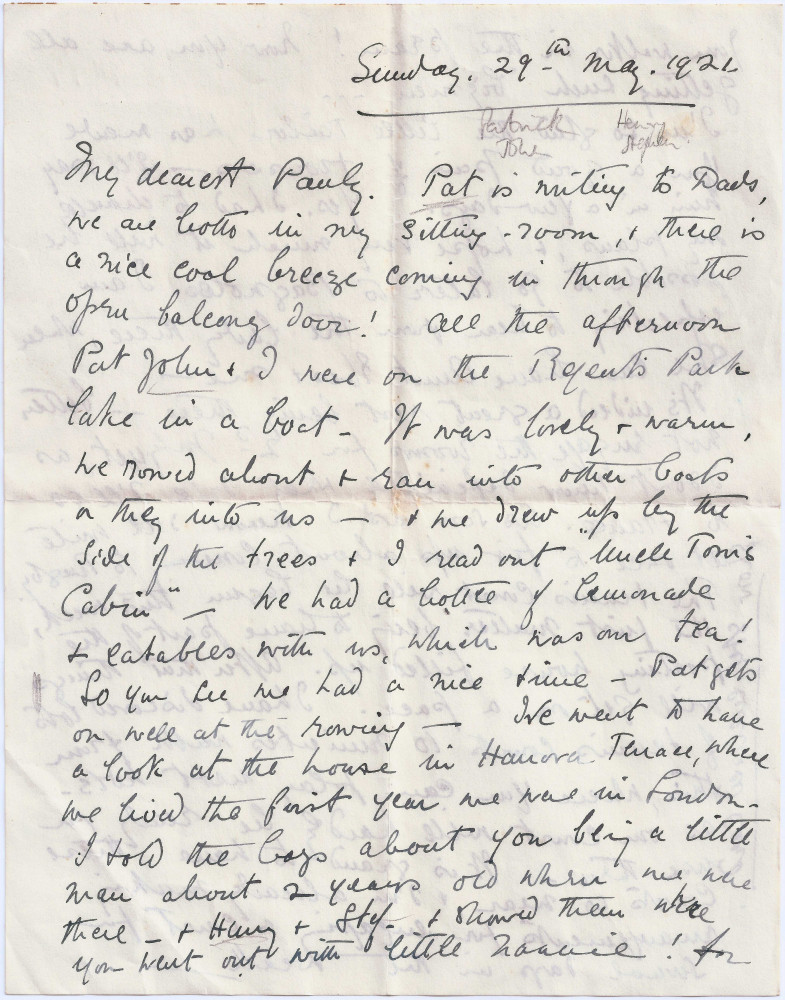 Sunday. 29th May. 1921
Patrick Henry
John Stephen
My dearest Pauly. Pat is writing to Dads,
we are both in my sitting-room, & there is
a nice cool breeze coming in through the
open balcony door! All the afternoon
Pat John & I were on the Regents Park
lake in a boat – It was lovely & warm,
we rowed about & ran into other boats
or they into us – & we drew up by the
side of the trees & I read out "Uncle Tom's
Cabin" – We had a bottle of lemonade
& eatables with us, which was our tea!
So you see we had a nice time – Pat gets
on well at the rowing – We went to have
a look at the house in Hanover Terrace, where
we lived the first year we were in London –
I told the boys about you being a little
man about 2 years old when we were
there – & Henry & Stef – & showed them where
you went out with little Nannie! for